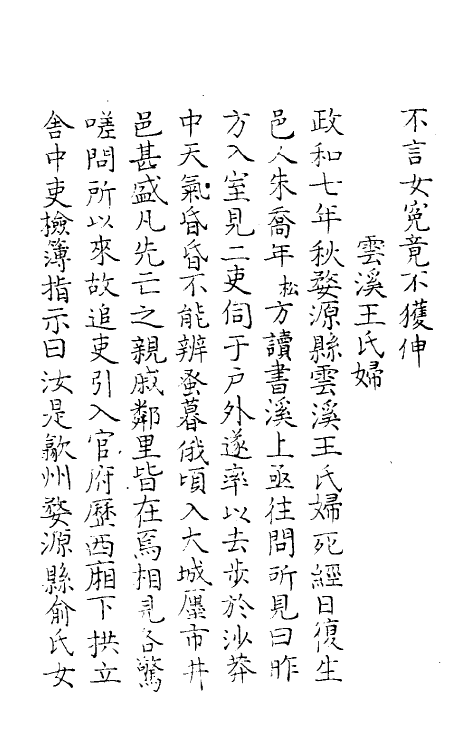 不言女寃竟不獲伸
雲溪王氏婦
政和七年秋婺源縣雲溪王氏婦死經日復生
邑人朱喬年松方讀書溪上亟徃問所見曰昨
方入室見二吏伺于户外遂率以去步於沙莽
中天氣昏昏不能辨蚤暮俄頃入大城廛市井
邑甚盛凡先亡之親戚鄰里皆在焉相見各驚
嗟問所以來故追吏引入官府歴西廂下拱立
舎中吏撿簿指示曰汝是歙州婺源縣俞氏女